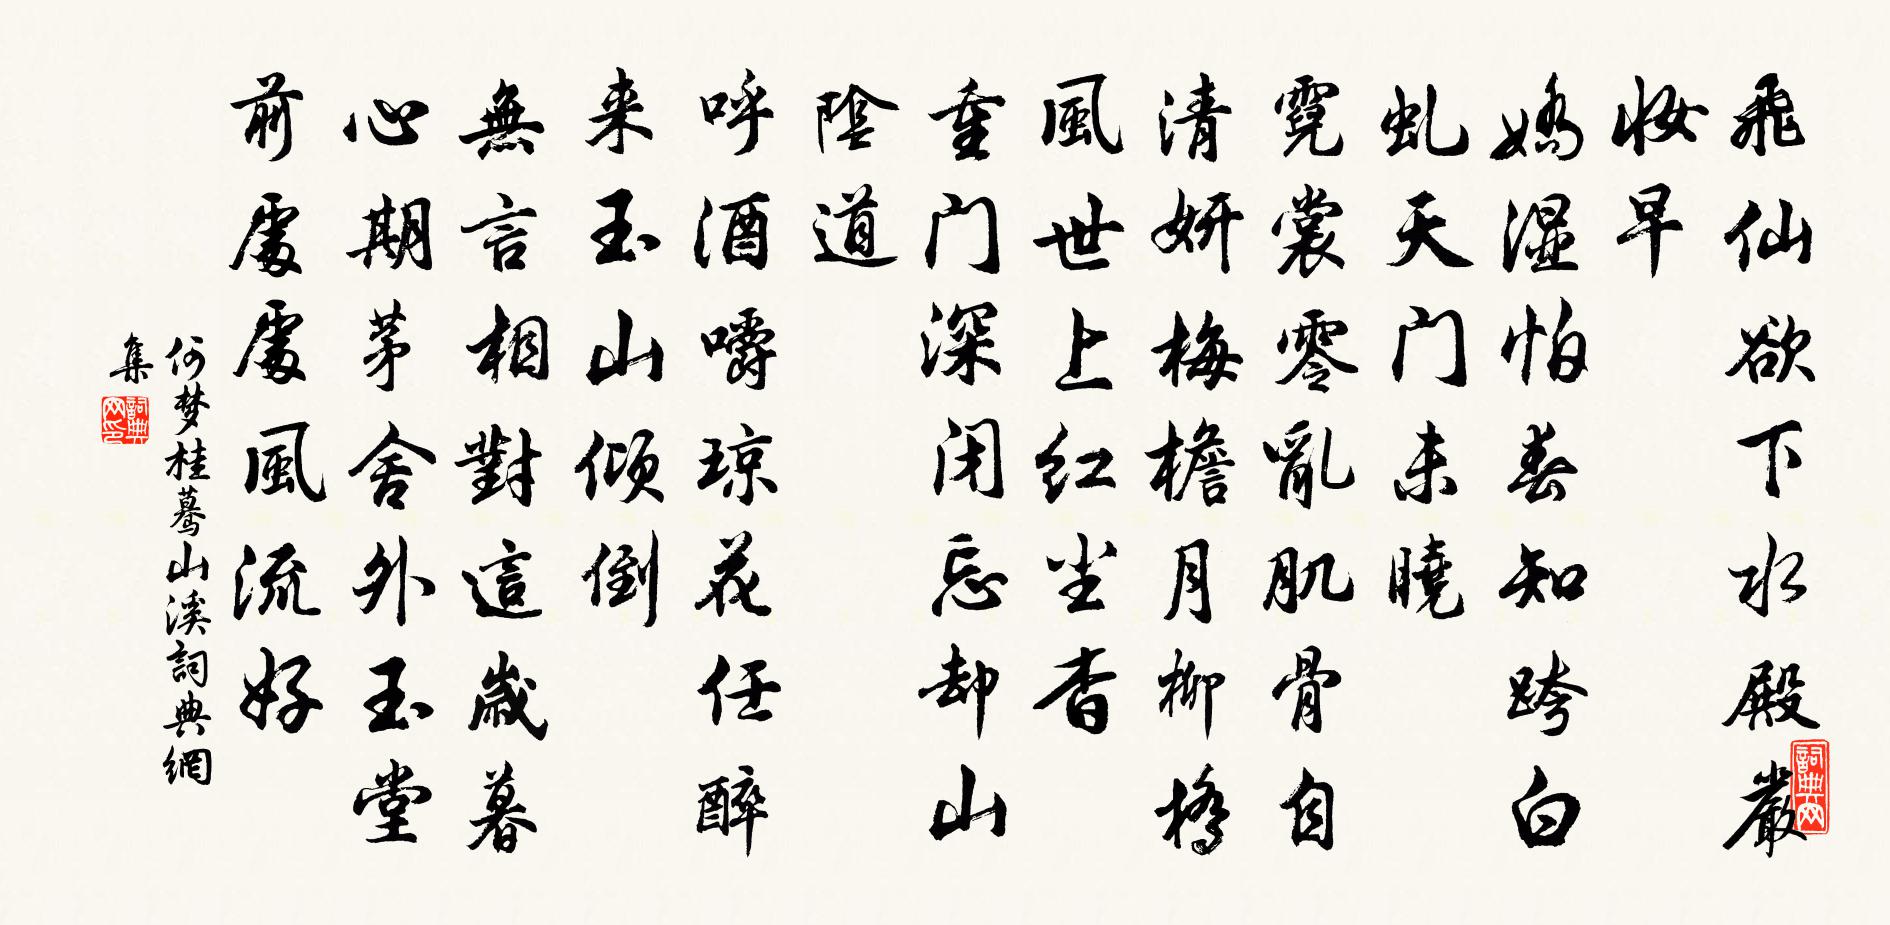 飛仙欲下水殿嚴
妝早
嬌湿怕春知跨白
虬天门未曉
霓裳零亂肌骨自
清妍梅檐月柳橋
風世上红尘杳
重门深闭忘却山
陰道
呼酒嚼琼花任醉
来玉山倾倒
無言相對這歲暮
心期茅舍外玉堂
前處處風流好
何梦桂蓦山溪詞典網
集
詞典网
詞典网印